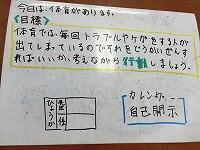 今日は、体育があります。
<目標>
体育では、毎回トラブルやケガをする人が
出てしまっているのでそれをどうかいぜんす
ればいいか、考えながら行動しましょう。
カレンダー
自己開示
先生
体
ひょうか